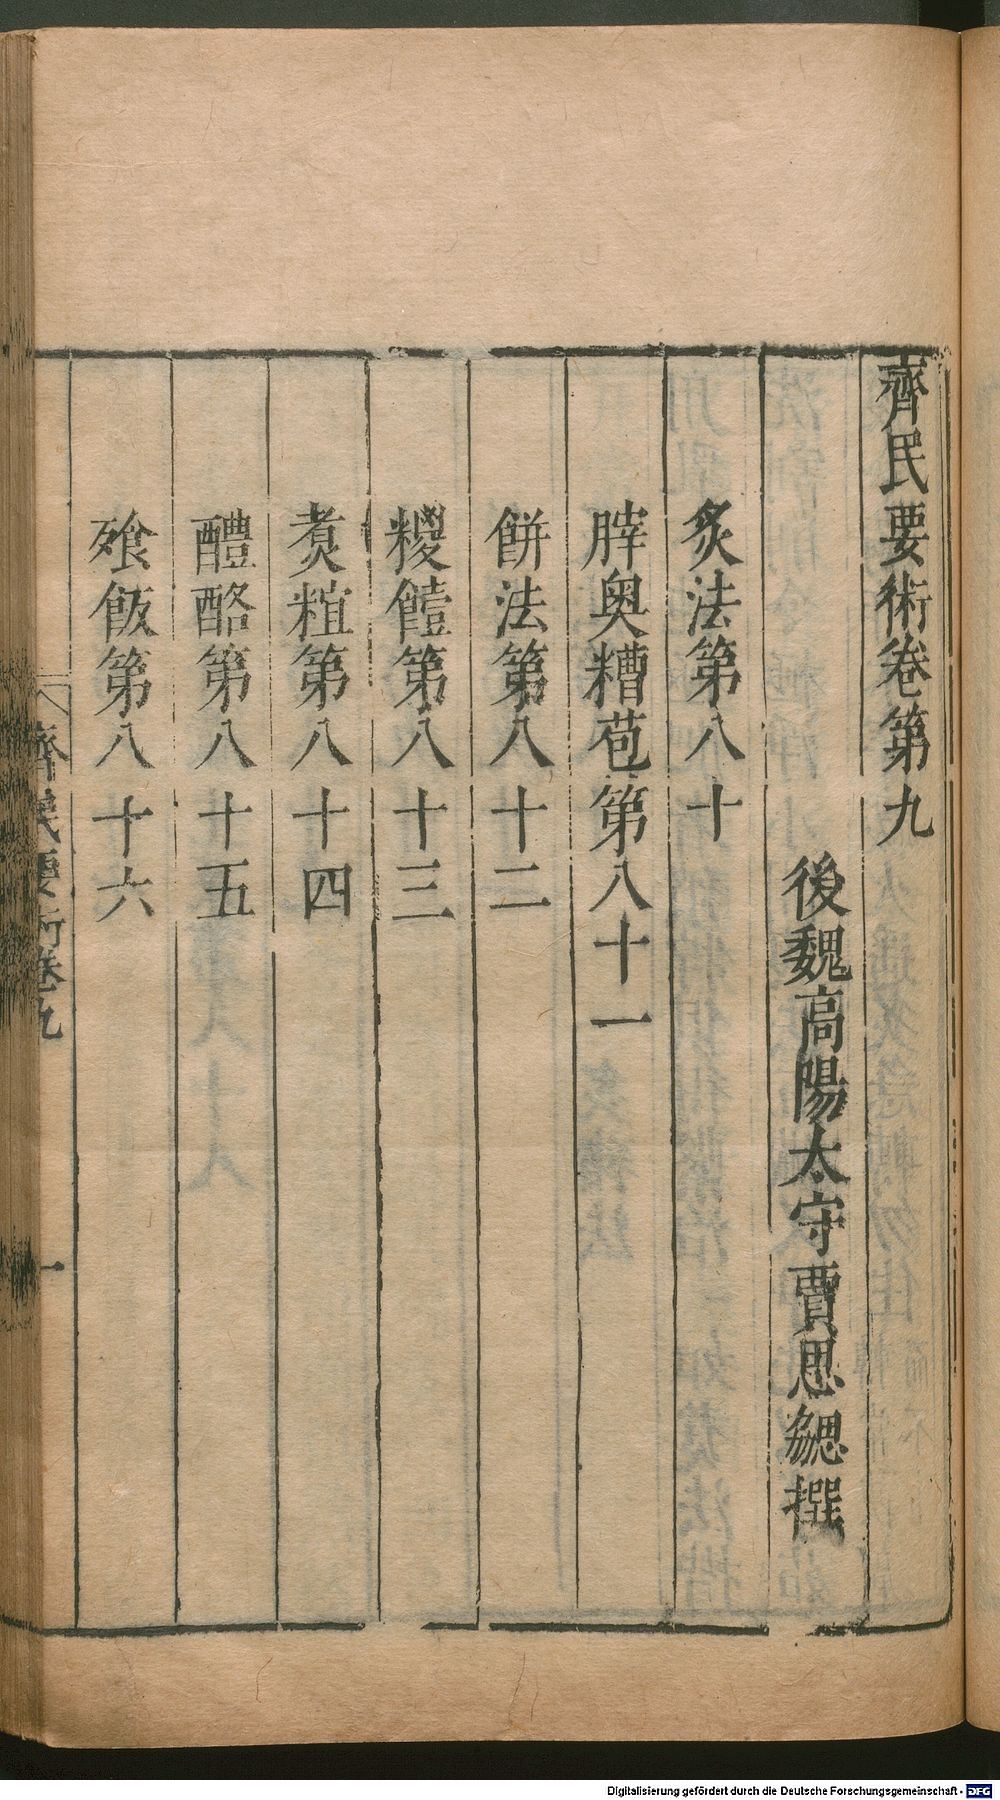 齊民要術卷第九
後魏高陽太守賈思勰撰
炙法第八十
脺奥糟苞第八十一
餅法第八十二
糭𩜶第八十三
煑䊦第八十四
醴酪第八十五
飱飯第八十六
齊民要術卷九
一
Digitalisierung gefördert durch die Deutsche Forschungsgemeinschaft - DFG